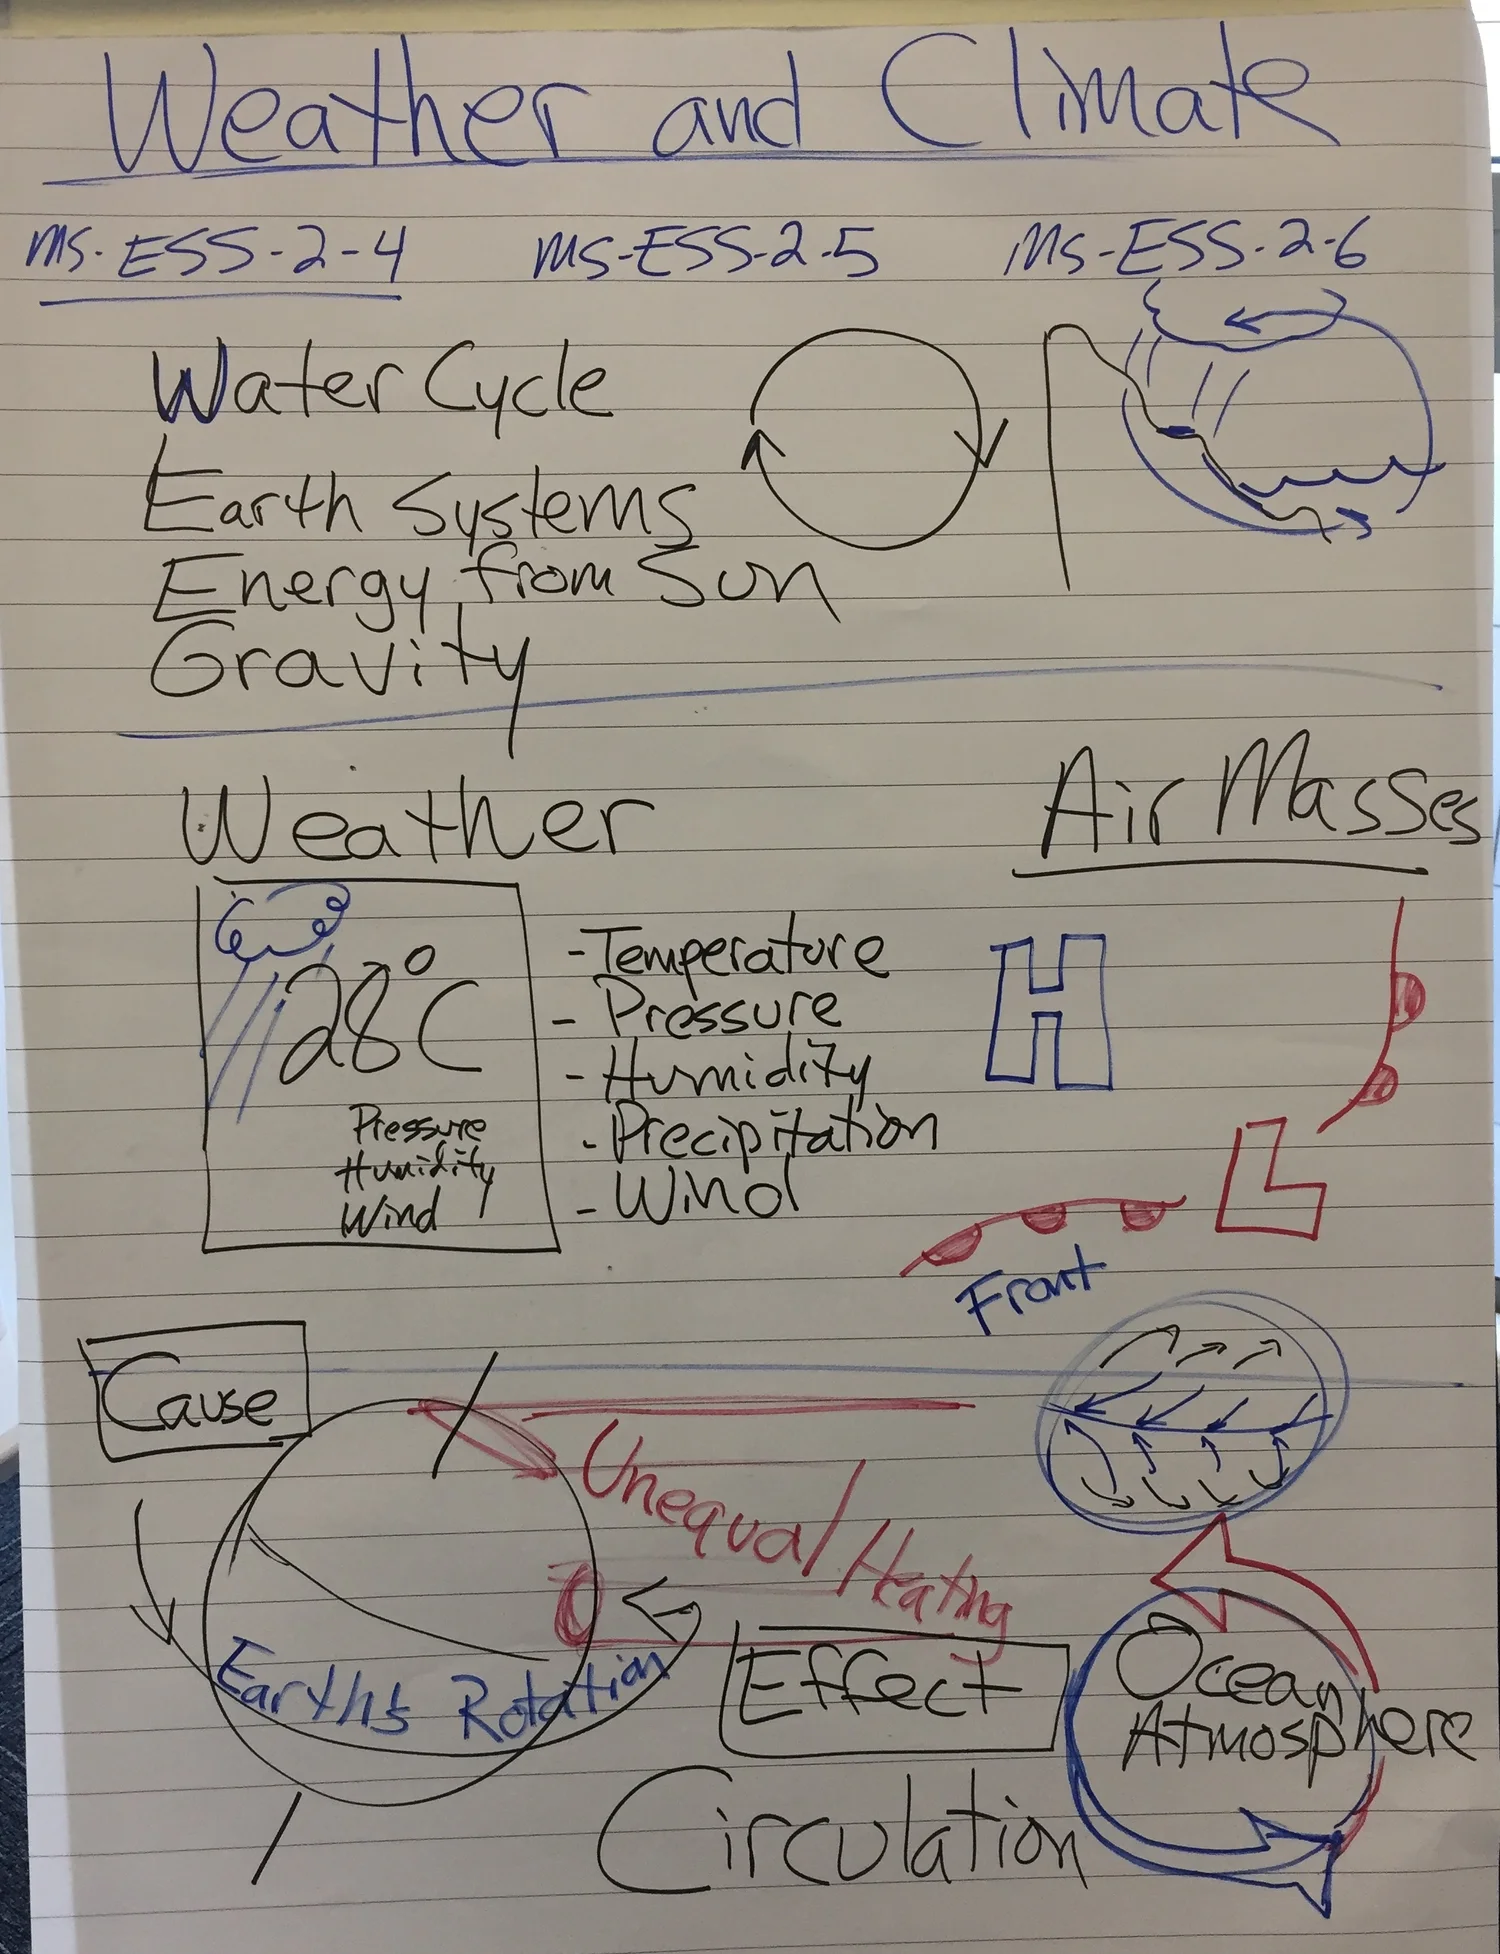 Weather and Climate
MS-ESS-2-4 MS-ESS-2-5 MS-ESS-2-6
Water Cycle
Earth Systems
Energy from Sun
Gravity
Weather
Air Masses
28°C
Pressure
Humidity
Wind
-Temperature
- Pressure
- Humidity
- Precipitation
- Wind
H
L
Front
Cause
Unequal Heating
Earths Rotation
Effect
Circulation
Ocean
Atmosphere